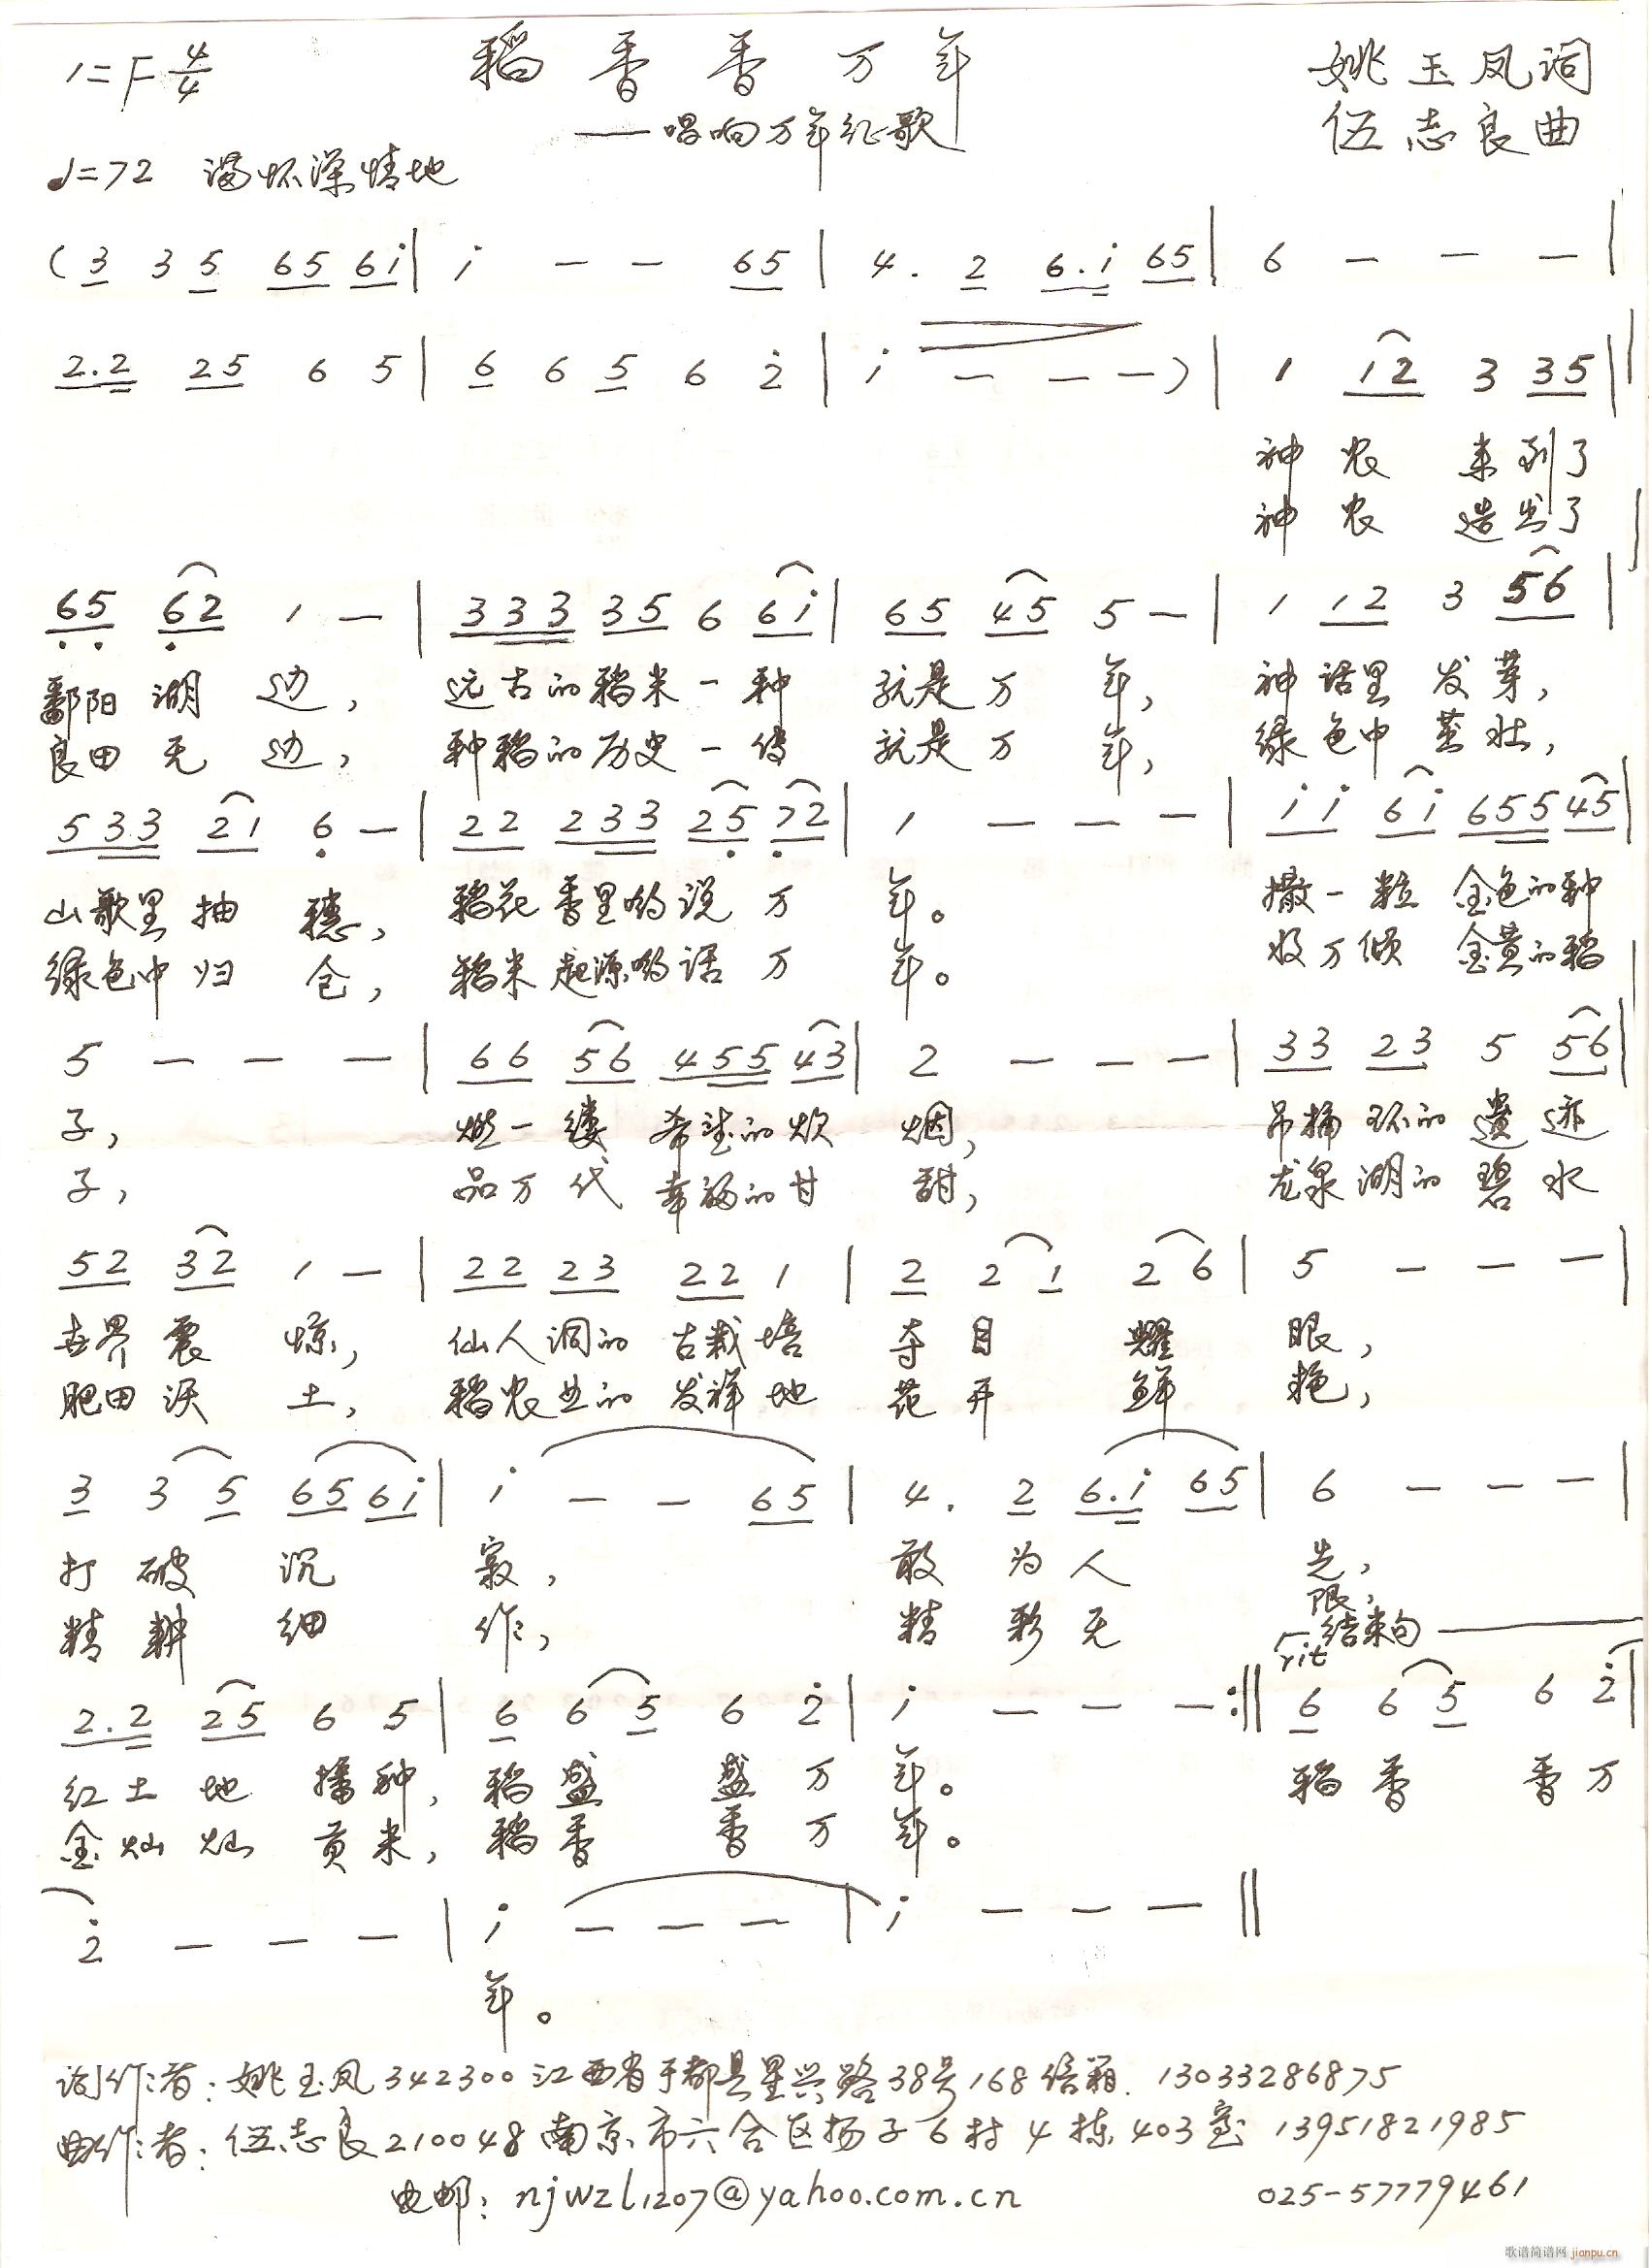 1=F 4/4 稻香香万年 姚玉凤词
——唱响万年征歌 伍志良曲
♩=72 满怀深情地
(3 3 5 65 6i | i - - 65 | 4. 2 6.i 65 | 6 - - - |
2.2 25 6 5 | 6 6 5 6 2 | i - - -) | 1 12 3 35 ||
神农 来到了
神农 造出了
65 62 1 - | 333 35 6 6i | 65 45 5 - | 1 12 3 56 |
鄱阳湖边, 远古的稻米一种 就是万年, 神话里发芽,
良田无边, 种稻的历史一传 就是万年, 绿色中茁壮,
533 21 6 - | 22 233 25 72 | 1 - - - | ii 6i 655 45 |
山歌里抽穗, 稻花香里哟说万年。 撒一粒金色的种
绿色中归仓, 稻米起源哟话万年。 收万倾金黄的稻
5 - - - | 66 56 455 43 | 2 - - - | 33 23 5 56 |
子, 燃一缕希望的炊烟, 吊桶环的遗迹
子, 品万代幸福的甘甜, 龙泉湖的碧水
52 32 1 - | 22 23 22 1 | 2 2 1 2 6 | 5 - - - |
世界震惊, 仙人洞的古栽培 夺目耀眼,
肥田沃土, 稻农业的发祥地 花开鲜艳,
3 3 5 65 6i | i - - 65 | 4. 2 6.i 65 | 6 - - - |
打破沉寂, 敢为人先,
精耕细作, 精彩无限;
rit 结束句
2.2 25 6 5 | 6 6 5 6 2 | i - - - :|| 6 6 5 6 2 |
红土地播种, 稻盛盛万年。 稻香香万
金灿灿贡米, 稻香香万年。
2 - - - | i - - - | i - - - ||
年。
词作者: 姚玉凤 342300 江西省于都县星兴路38号168信箱. 13033286875
曲作者: 伍志良 210048 南京市六合区扬子6村4栋403室 13951821985
电邮: njwzl1207@yahoo.com.cn 025-57779461
歌谱简谱网 jianpu.cn